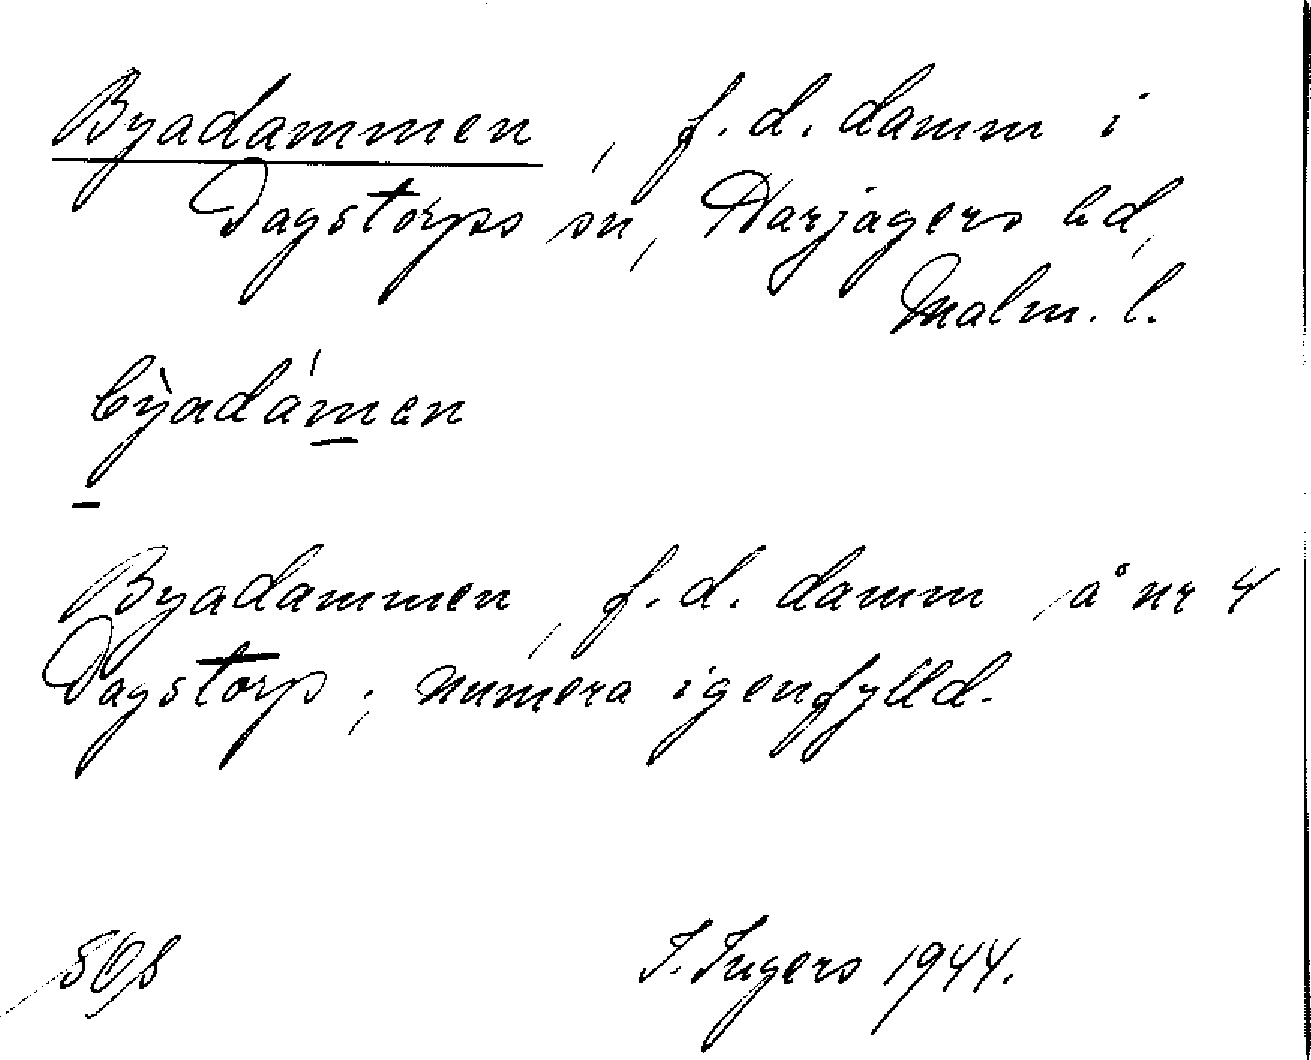 Byadammen, f.d. damm i
Dagstorps sn, Harjagers hd,
Malm. l.
bỳadámen
Byadammen, f.d. damm å nr 4
Dagstorp; numera igenfylld.
I. Ingers 1944.